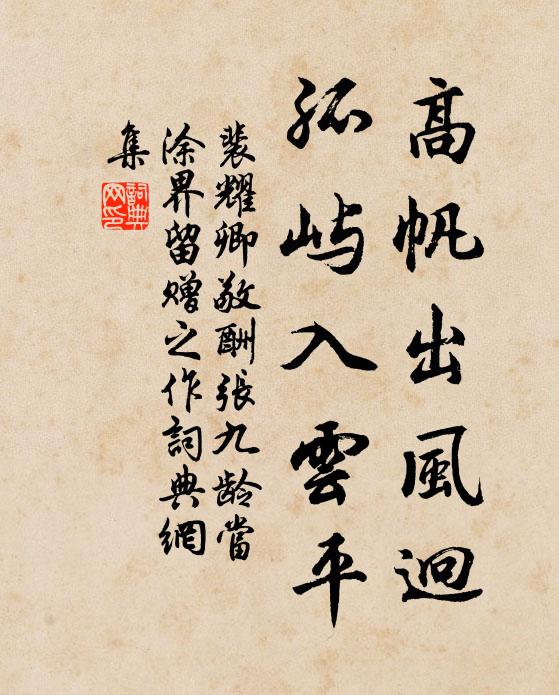 高帆出風迥
孤屿入雲平
裴耀卿敬酬張九龄當
涂界留贈之作詞典網
集
詞典
网印